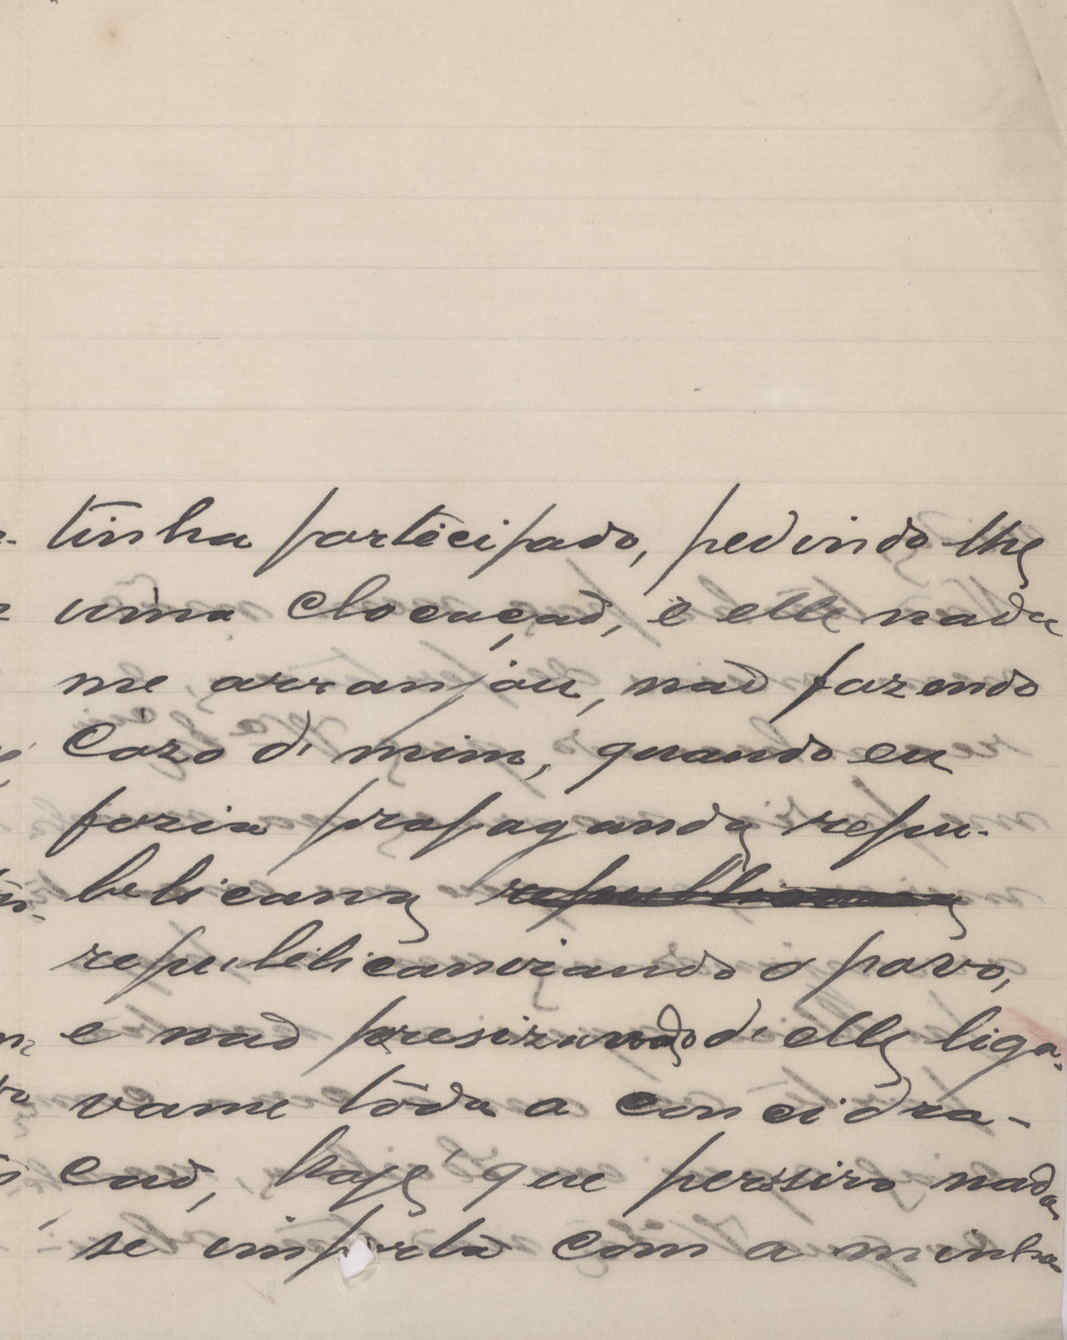 tinha partecipado, pedindo-lhe
uma clocação, e elle nada
me arranjou, não fazendo
cazo d' mim, quando eu
fazia propaganda repu-
belicana republicana
repubelicanizando o povo,
e não presizando d' elle liga-
vame tôda a concidra-
cão, hoje que persizo nada
se importa com a minha